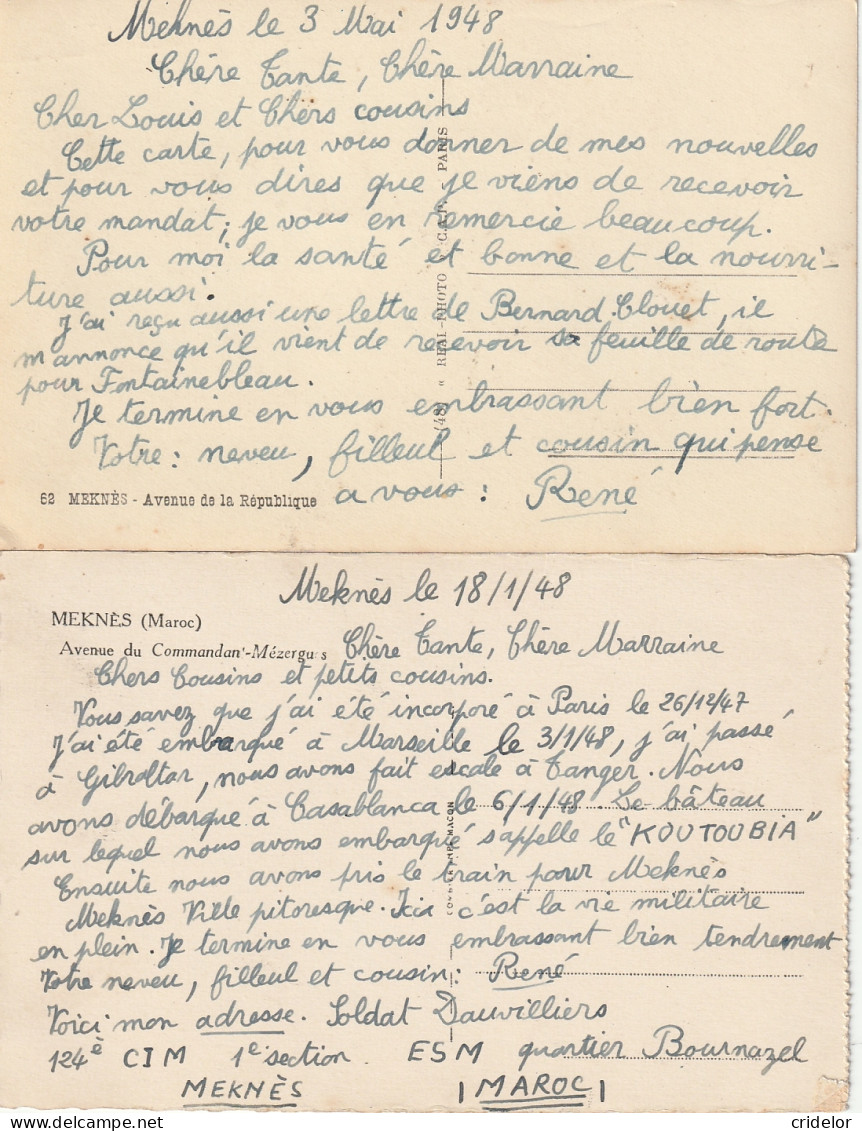 Meknès le 3 Mai 1948
Chère Tante, Chère Marraine
Cher Louis et Chers cousins
Cette carte, pour vous donner de mes nouvelles
et pour vous dires que je viens de recevoir
votre mandat; je vous en remercie beaucoup.
Pour moi la santé et bonne et la nourri-
ture aussi.
J'ai reçu aussi une lettre de Bernard Clouet, il
m'annonce qu'il vient de recevoir sa feuille de route
pour Fontainebleau.
Je termine en vous embrassant bien fort.
Votre: neveu, filleul et cousin qui pense
a vous: René
62 MEKNÈS - Avenue de la République
(48) « RÉAL-PHOTO » C.A.P. - PARIS
Meknès le 18/1/48
MEKNÈS (Maroc)
Avenue du Commandant-Mézergues
Chère Tante, Chère Marraine
Chers Cousins et petits cousins.
Vous savez que j'ai été incorporé à Paris le 26/12/47
J'ai été embarqué à Marseille le 3/1/48, j'ai passé
à Gibraltar, nous avons fait escale à Tanger. Nous
avons débarqué à Casablanca le 6/1/48. Le bâteau
sur lequel nous avons embarqué s'appelle le "KOUTOUBIA"
Ensuite nous avons pris le train pour Meknès
Meknès Ville pitoresque. Ici c'est la vie militaire
en plein. Je termine en vous embrassant bien tendrement
Votre neveu, filleul et cousin: René
Voici mon adresse. Soldat Dauvilliers
124è CIM 1e section ESM quartier Bournazel
MEKNÈS (MAROC)
MACON
cridelor